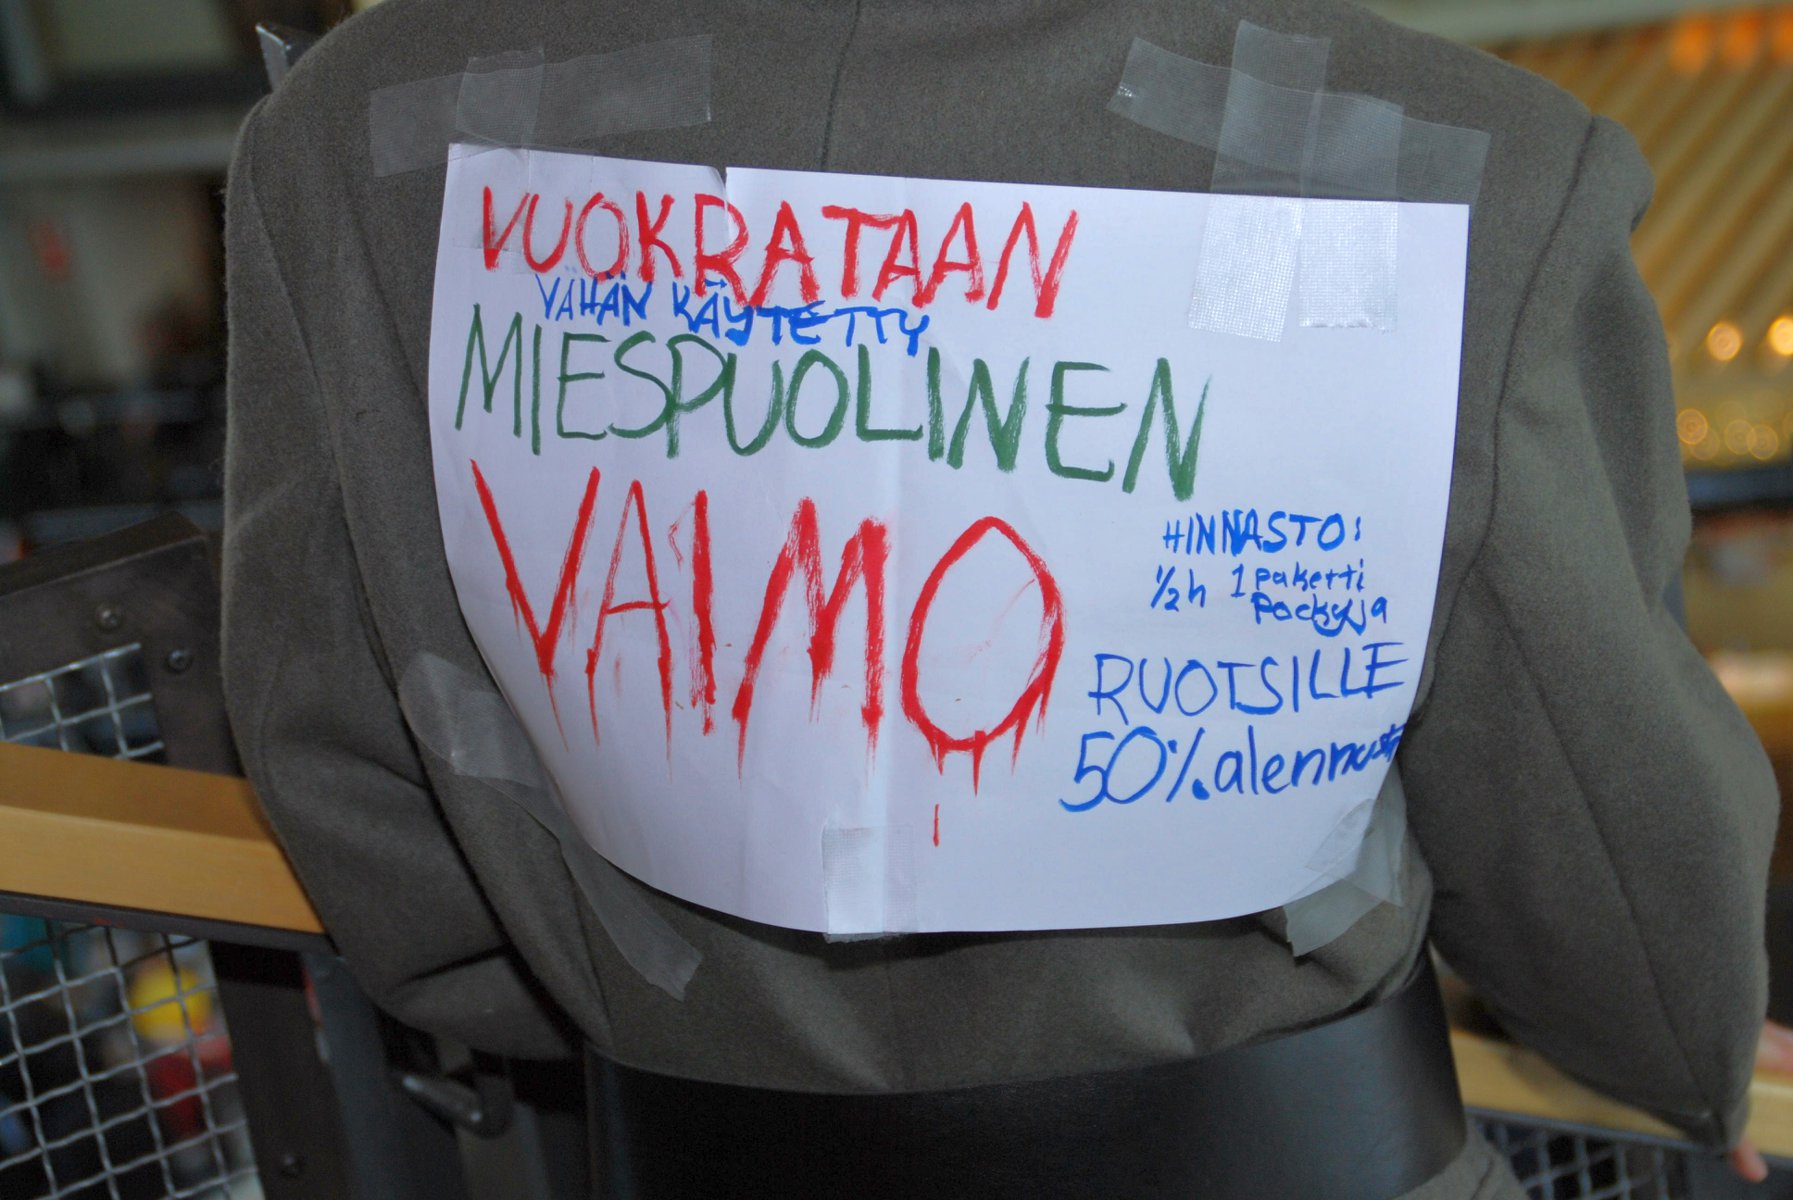 VUOKRATAAN
VÄHÄN KÄYTETTY
MIESPUOLINEN
VAIMO
HINNASTO:
½ h 1 paketti
pockyja
RUOTSILLE
50% alennusta